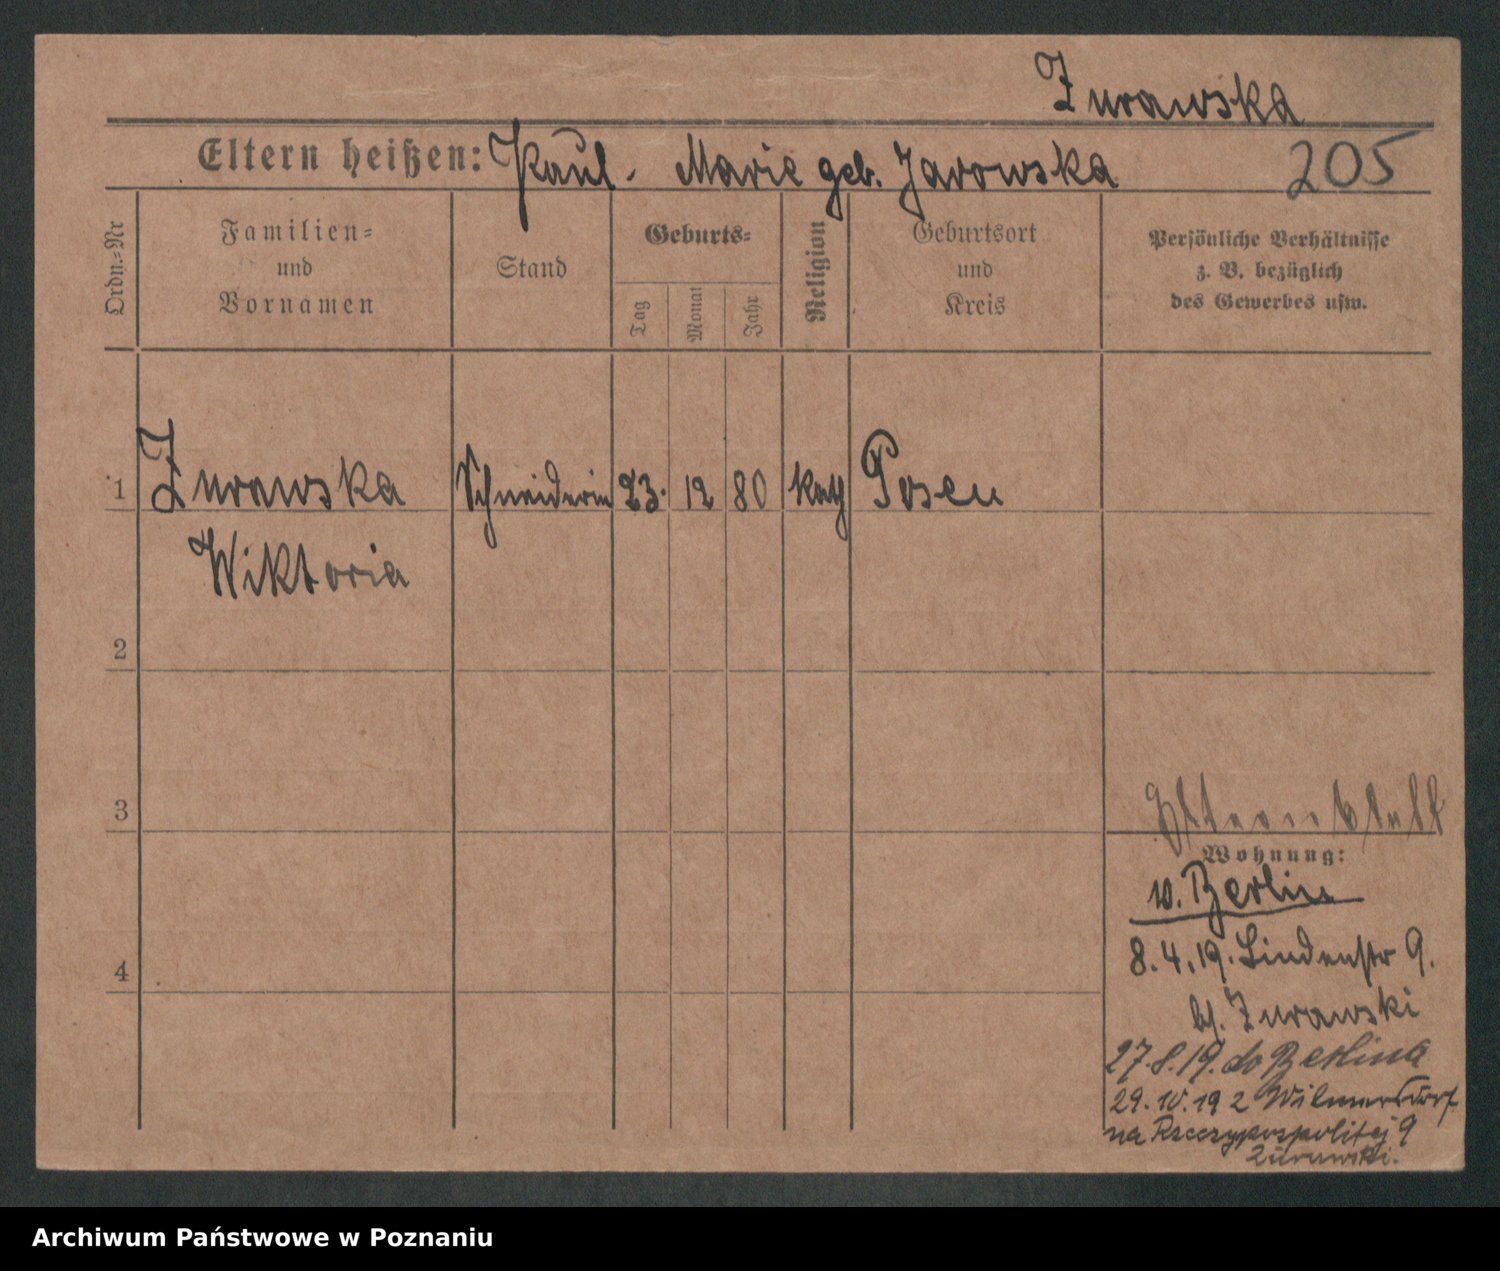 Zurawska
Eltern heißen: Paul. Marie geb. Jarowska 205
Ordn.-Nr
Familien-
und
Vornamen
Stand
Geburts-
Tag
Monat
Jahr
Religion
Geburtsort
und
Kreis
Persönliche Verhältnisse
z. B. bezüglich
des Gewerbes usw.
1 Zurawska Schneiderin 23. 12 80 kath Posen
Wiktoria
2
3
4
Wohnung:
v. Berlin
8.4.19. Lindenstr 9.
bf. Zurawski
27.8.19. do Berlina
29.10.19 z Wilmersdorf
na Rzeczypospolitej 9
Zurawski.
Archiwum Państwowe w Poznaniu